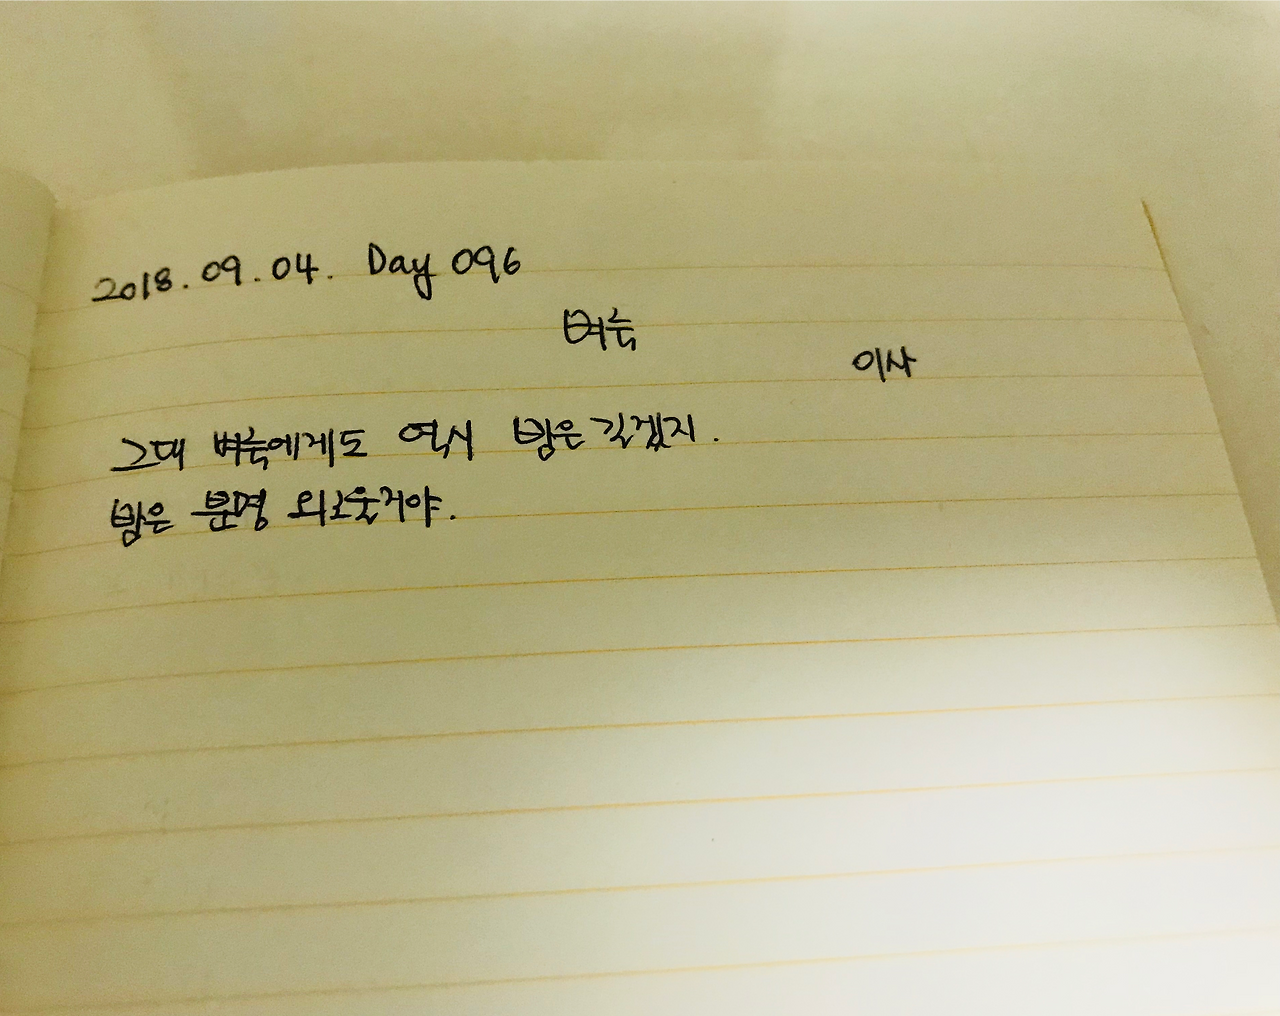 2018.09.04. Day 096
벼룩
이사
그대 벼룩에게도 역시 밤은 길겠지.
밤은 분명 외로울거야.